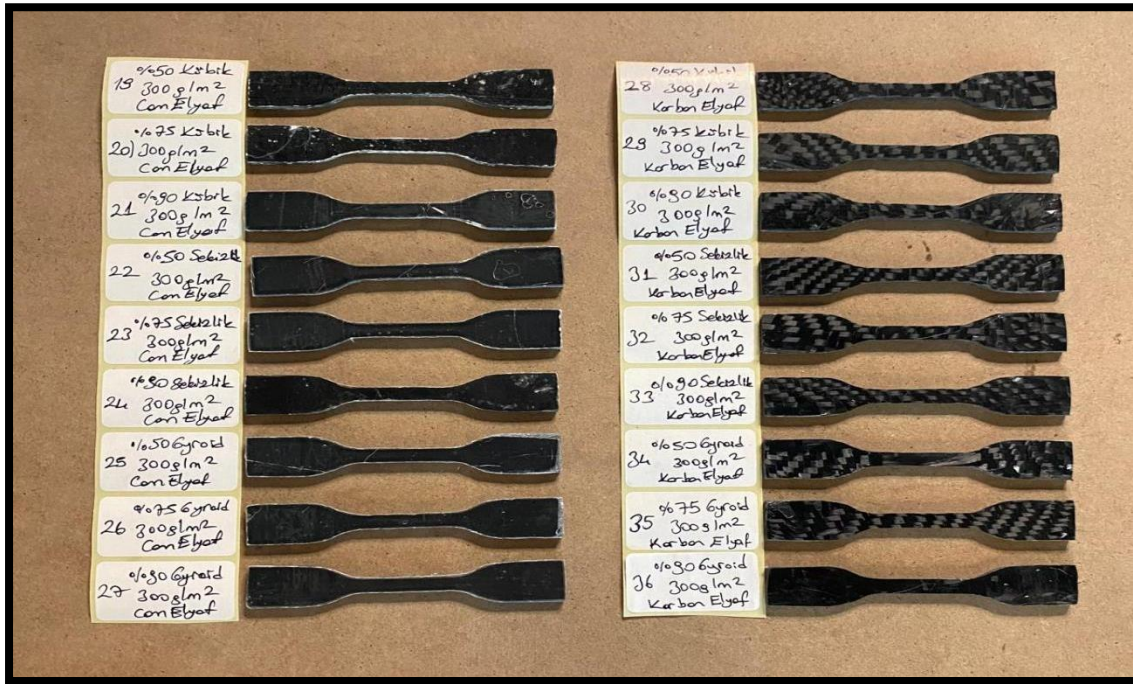 %50 Kübik
19 300g/m2
Cam Elyaf
%75 Kübik
20) 300g/m2
Cam Elyaf
%90 Kübik
21 300g/m2
Cam Elyaf
%50 Sekizlik
22 300g/m2
Cam Elyaf
23 %75 Sekizlik
300g/m2
Cam Elyaf
%90 Sekizlik
24 300g/m2
Cam Elyaf
%50 Gyroid
25 300g/m2
Cam Elyaf
%75 Gyroid
26 300g/m2
Cam Elyaf
%90 Gyroid
27 300g/m2
Cam Elyaf
%50 Kübik
28 300g/m2
Karbon Elyaf
%75 Kübik
29 300g/m2
Karbon Elyaf
%90 Kübik
30 300g/m2
Karbon Elyaf
%50 Sekizlik
31 300g/m2
Karbon Elyaf
%75 Sekizlik
32 300g/m2
Karbon Elyaf
%90 Sekizlik
33 300g/m2
Karbon Elyaf
%50 Gyroid
34 300g/m2
Karbon Elyaf
%75 Gyroid
35 300g/m2
Karbon Elyaf
%90 Gyroid
36 300g/m2
Karbon Elyaf